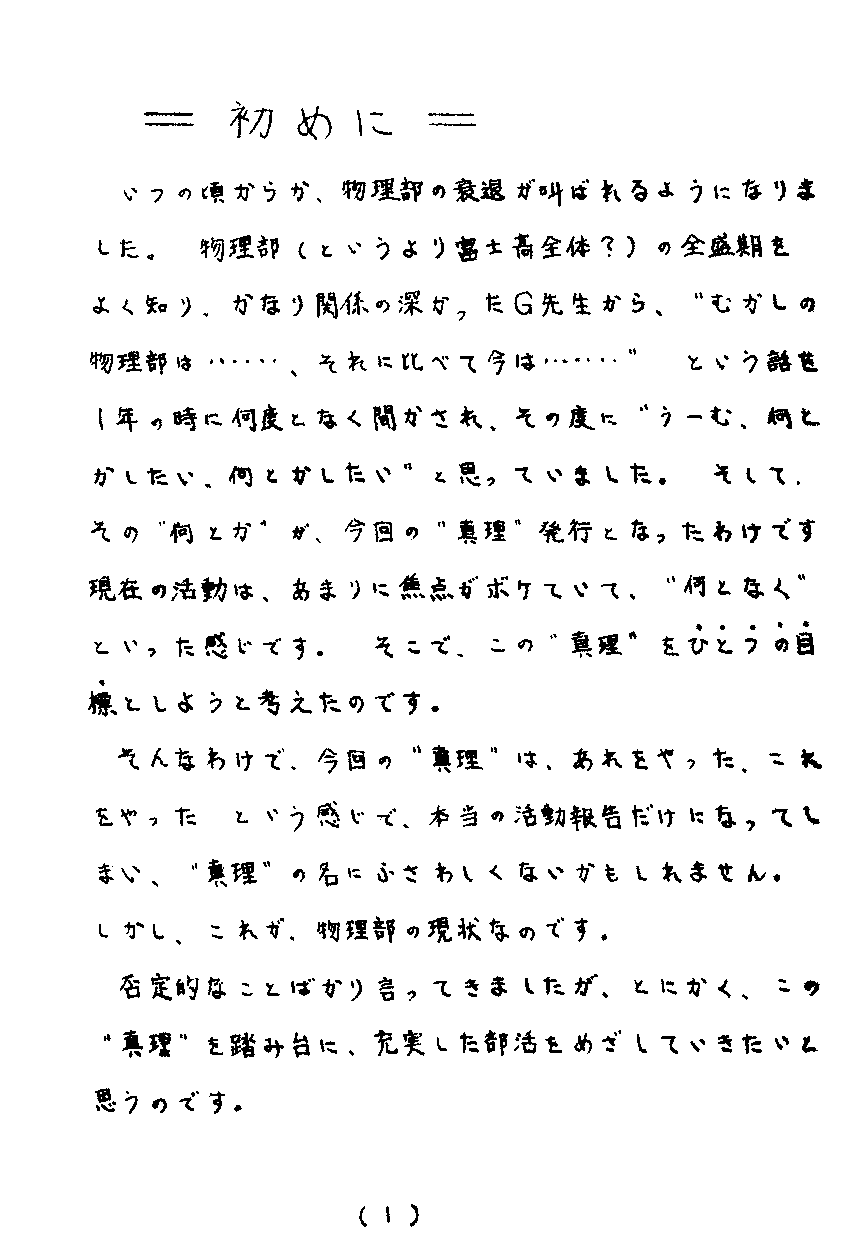 ＝ 初めに ＝
いつの頃からか、物理部の衰退が叫ばれるようになりま
した。　物理部（というより富士高全体？）の全盛期を
よく知り、かなり関係の深かったG先生から、“むかしの
物理部は……、それに比べて今は……”　という話を
1年の時に何度となく聞かされ、その度に“うーむ、何と
かしたい、何とかしたい”と思っていました。　そして、
その“何とか”が、今回の“真理”発行となったわけです
現在の活動は、あまりに焦点がボケていて、“何となく”
といった感じです。　そこで、この“真理”をひとつの目
標としようと考えたのです。
そんなわけで、今回の“真理”は、あれをやった、これ
をやった　という感じで、本当の活動報告だけになってし
まい、“真理”の名にふさわしくないかもしれません。
しかし、これが、物理部の現状なのです。
否定的なことばかり言ってきましたが、とにかく、この
“真理”を踏み台に、充実した部活をめざしていきたいと
思うのです。
(1)